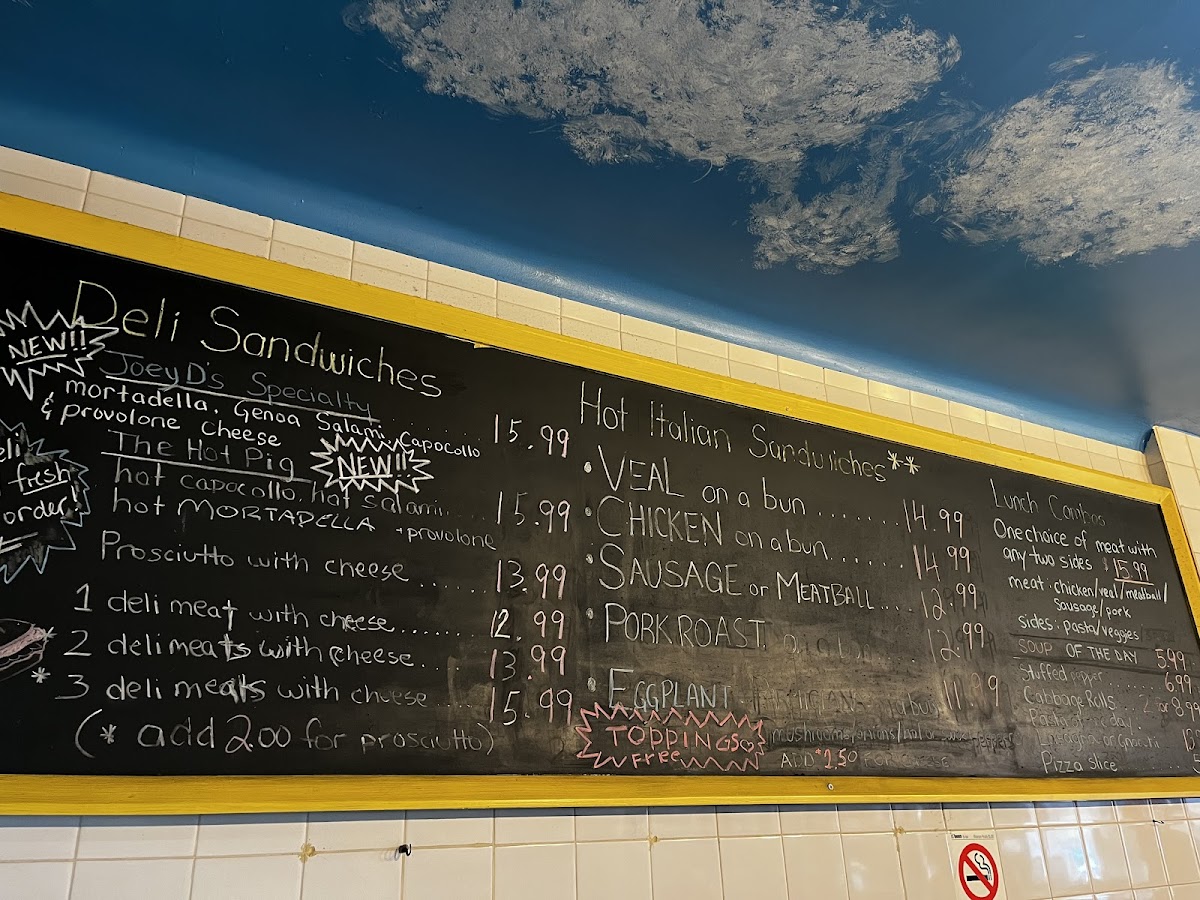 Deli Sandwiches
NEW!!
JoeyD's Specialty
mortadella, Genoa Salami, Capocollo
& provolone Cheese ..... 15.99
The Hot Pig
NEW!!
hot capocollo, hot salami..... 15.99
hot MORTADELLA + provolone
fresh
order!
Prosciutto with cheese..... 13.99
1 deli meat with cheese....... 12.99
* 2 deli meats with cheese... 13.99
* 3 deli meats with cheese..... 15.99
(* add 2.00 for prosciutto)
Hot Italian Sandwiches**
• VEAL on a bun........ 14.99
• CHICKEN on a bun...... 14.99
• SAUSAGE or MEATBALL.... 12.99
• PORK ROAST 12.99
• EGGPLANT 11.99
TOPPINGS
FREE
mushrooms/onions/hot or sweet peppers
ADD $1.50 FOR CHEESE
Lunch Combos
One choice of meat with
any two sides $15.99
meat: chicken/veal/meatball/
Sausage/pork
sides: pasta/veggies
SOUP OF THE DAY 5.99
Stuffed pepper 6.99
Cabbage Rolls
Pizza Slice